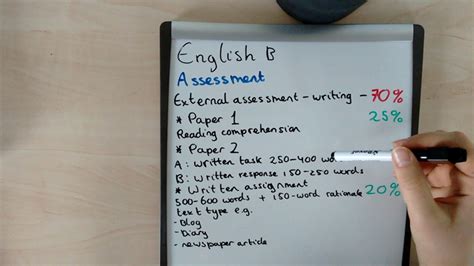 English B
Assessment
External assessment - writing - 70%
* Paper 1 25%
Reading comprehension
* Paper 2
A: written task 250-400
B: written response 150-250 words
* Written assignment 20%
500-600 words + 150-word rationale
text type e.g.
- Blog
- Diary
- newspaper article